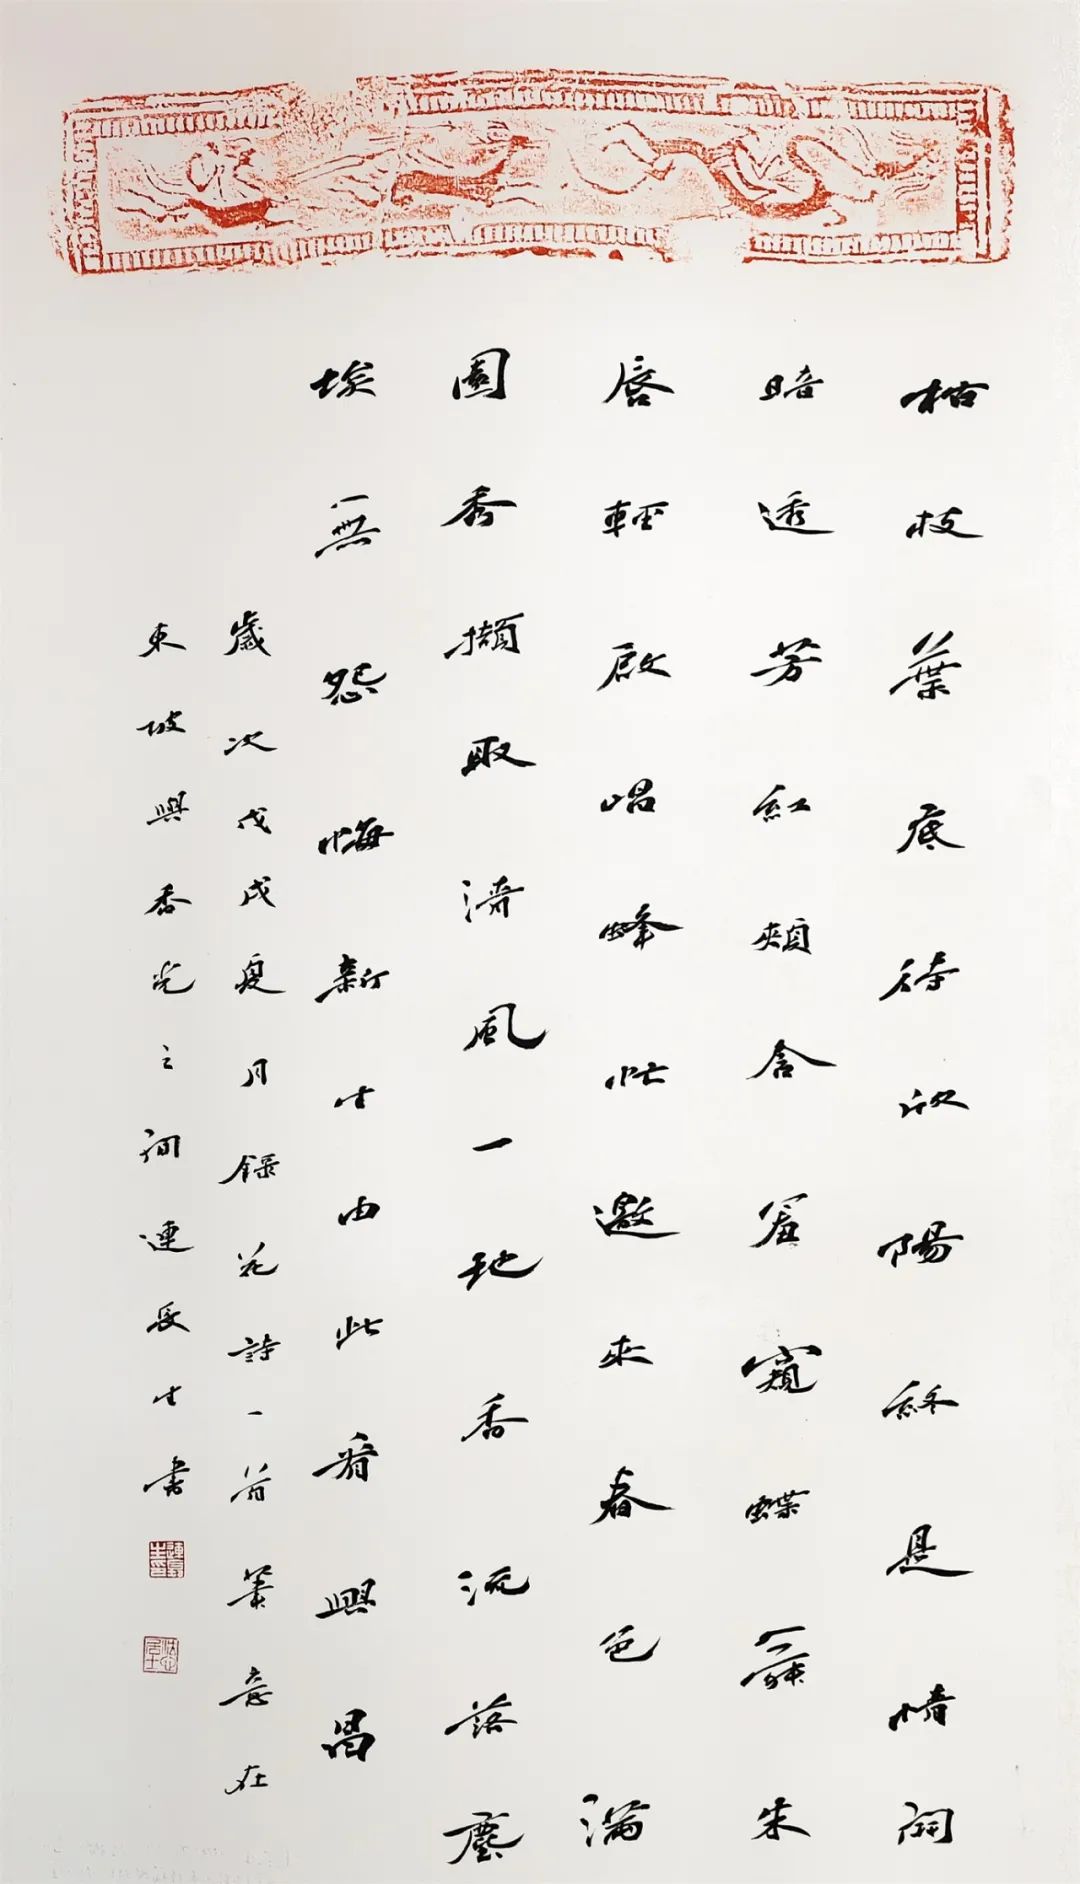 枯枝葉底待欣陽終是情開
暗透芳紅頰含羞窺蝶舞朱
唇輕啟唱蜂忙邀來春色滿
園秀擷取清風一地香流落塵
埃無怨悔新生由此看興昌
歲次戊戌夏月錄花詩一首筆意在
東坡與香光之間連長生書